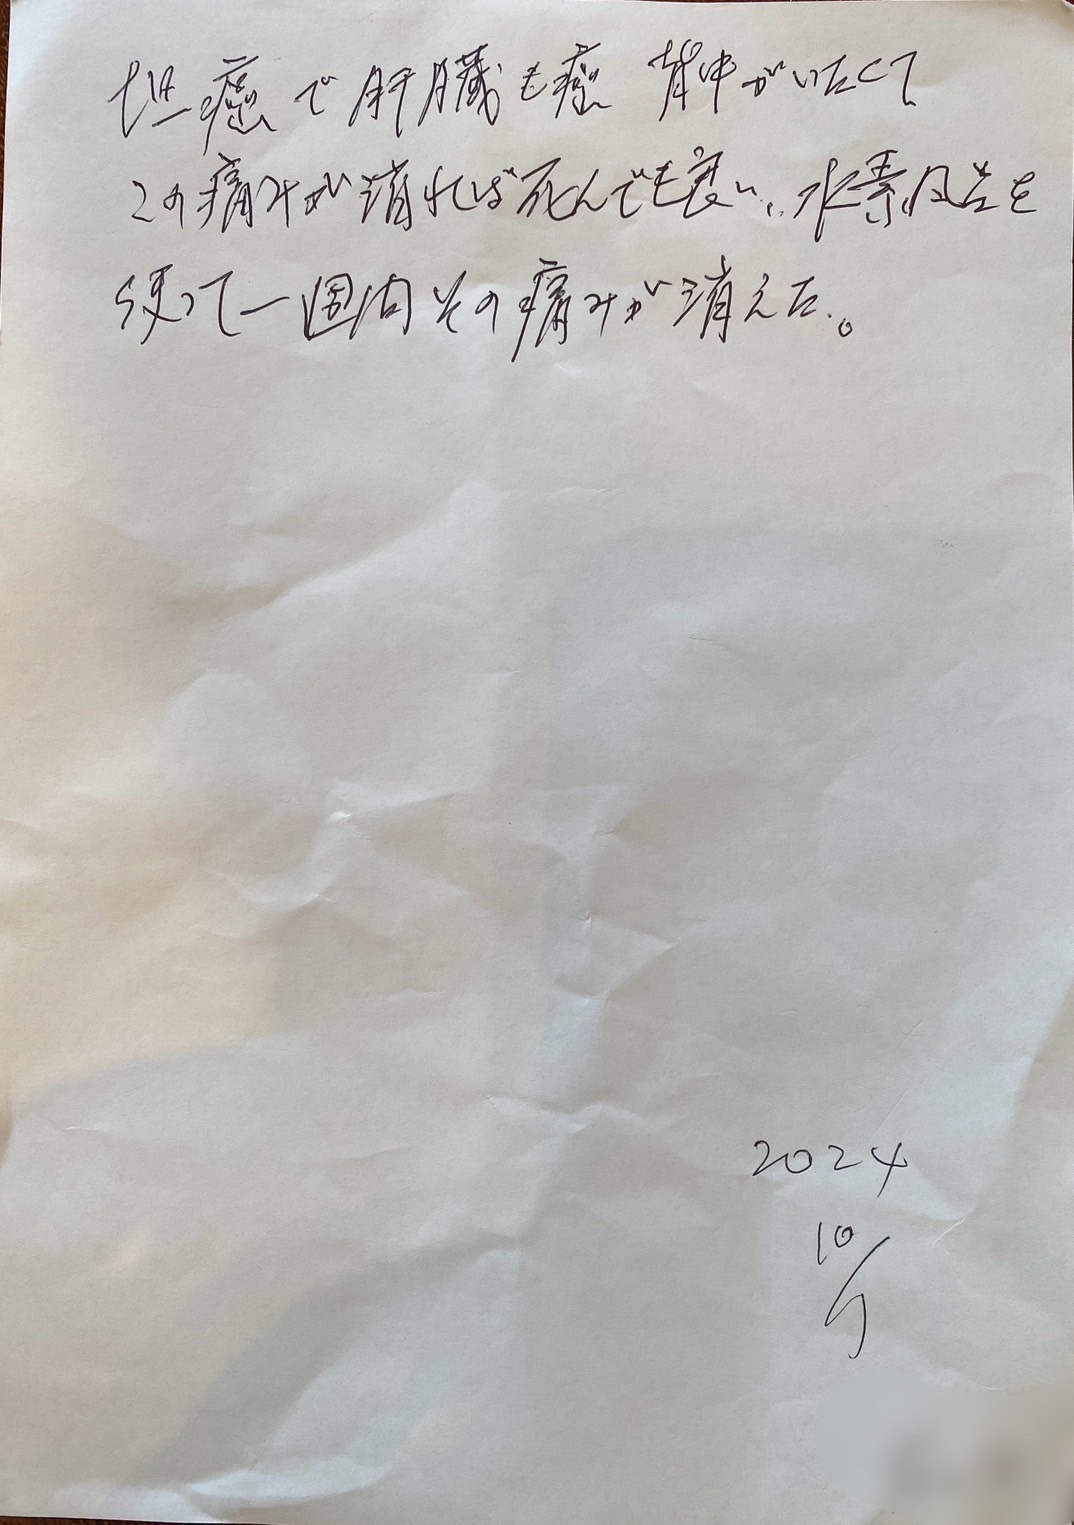 胆癌で肝臓も癌 背中がいたくて
この痛みが消れば死んでも良い、水素風呂を
使って一週間その痛みが消えた。
2024
10/7